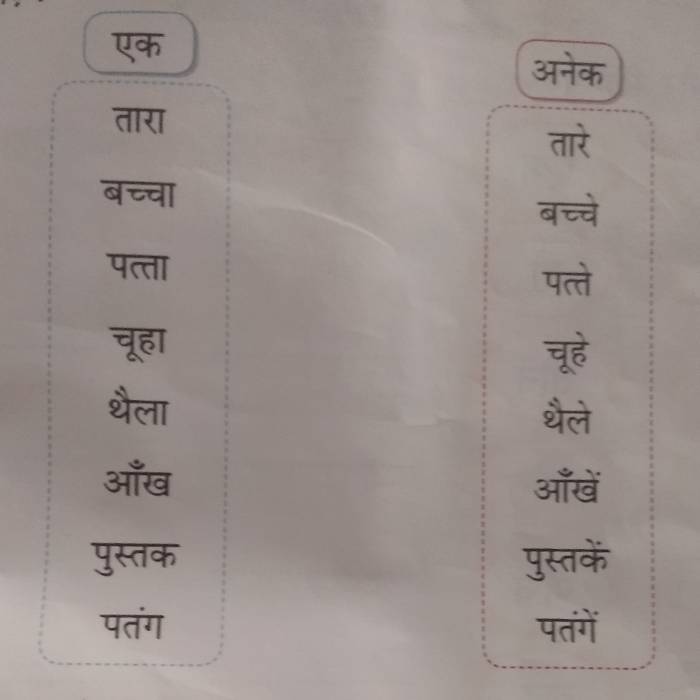 एक
तारा
बच्चा
पत्ता
चूहा
थैला
आँख
पुस्तक
पतंग
अनेक
तारे
बच्चे
पत्ते
चूहे
थैले
आँखें
पुस्तकें
पतंगें